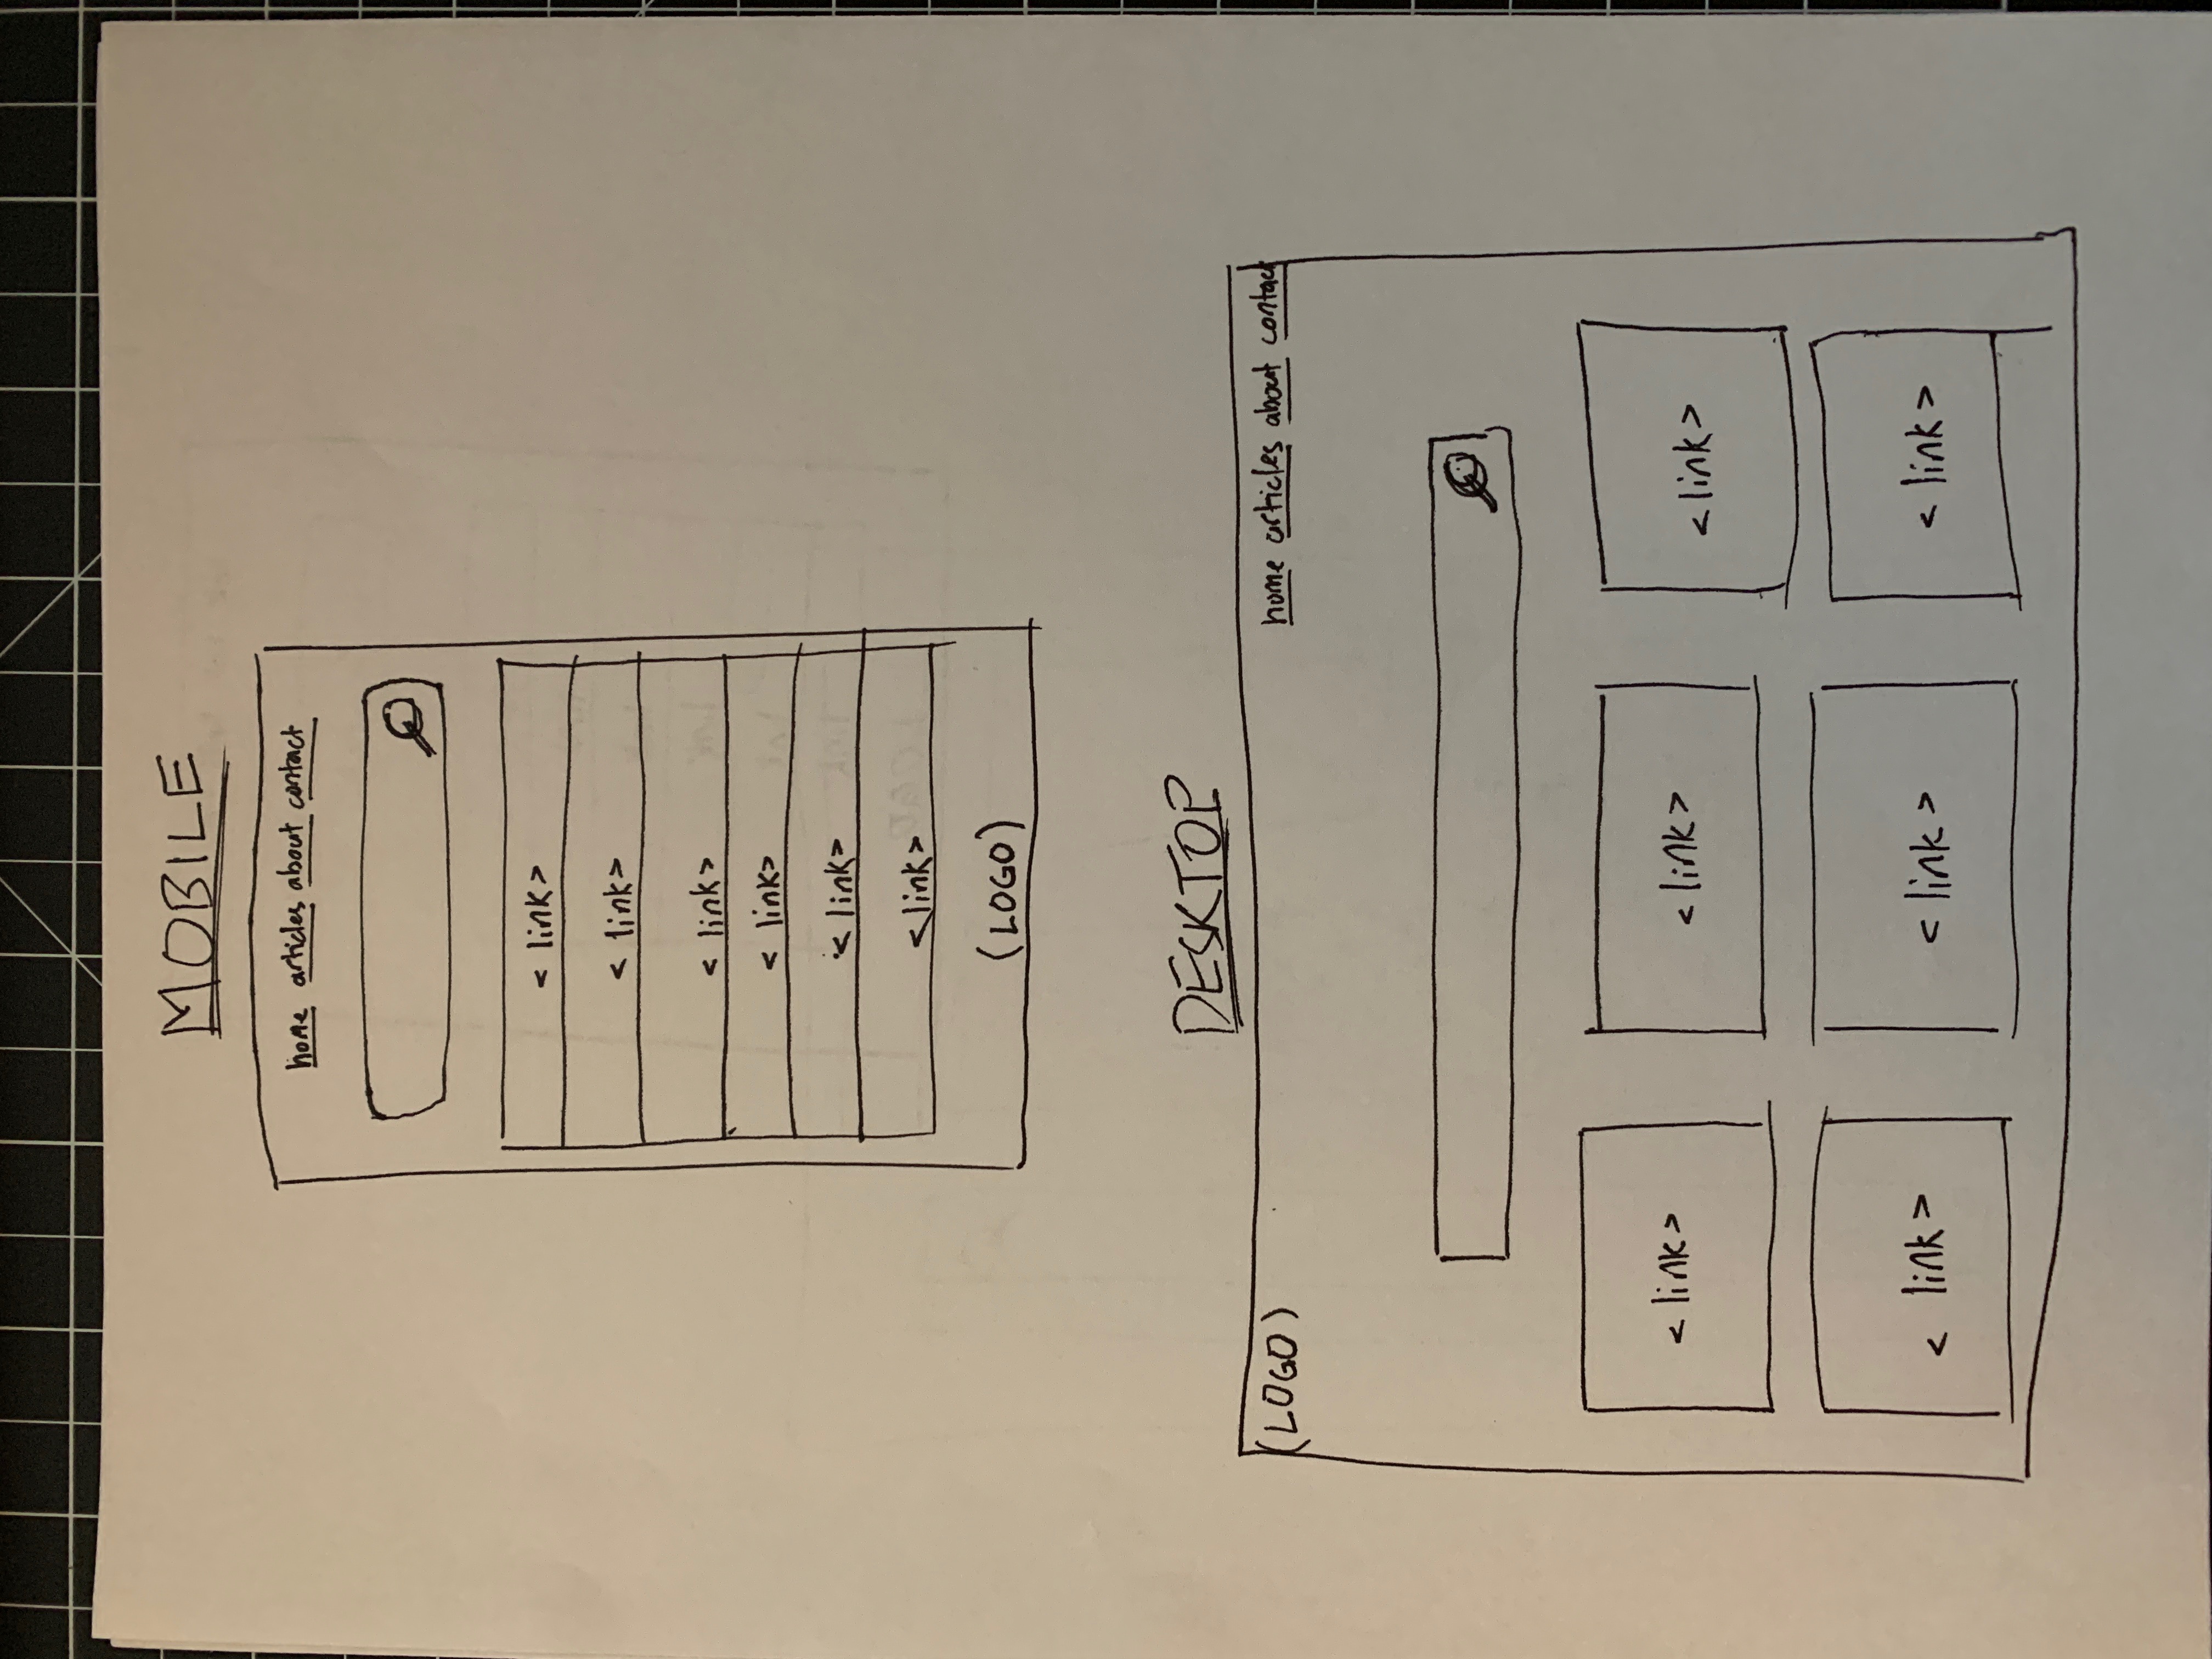 MOBILE
home articles about contact
< link >
< link >
< link >
< link >
< link >
< link >
(LOGO)
DESKTOP
(LOGO) home articles about contact
< link > < link > < link >
< link > < link > < link >